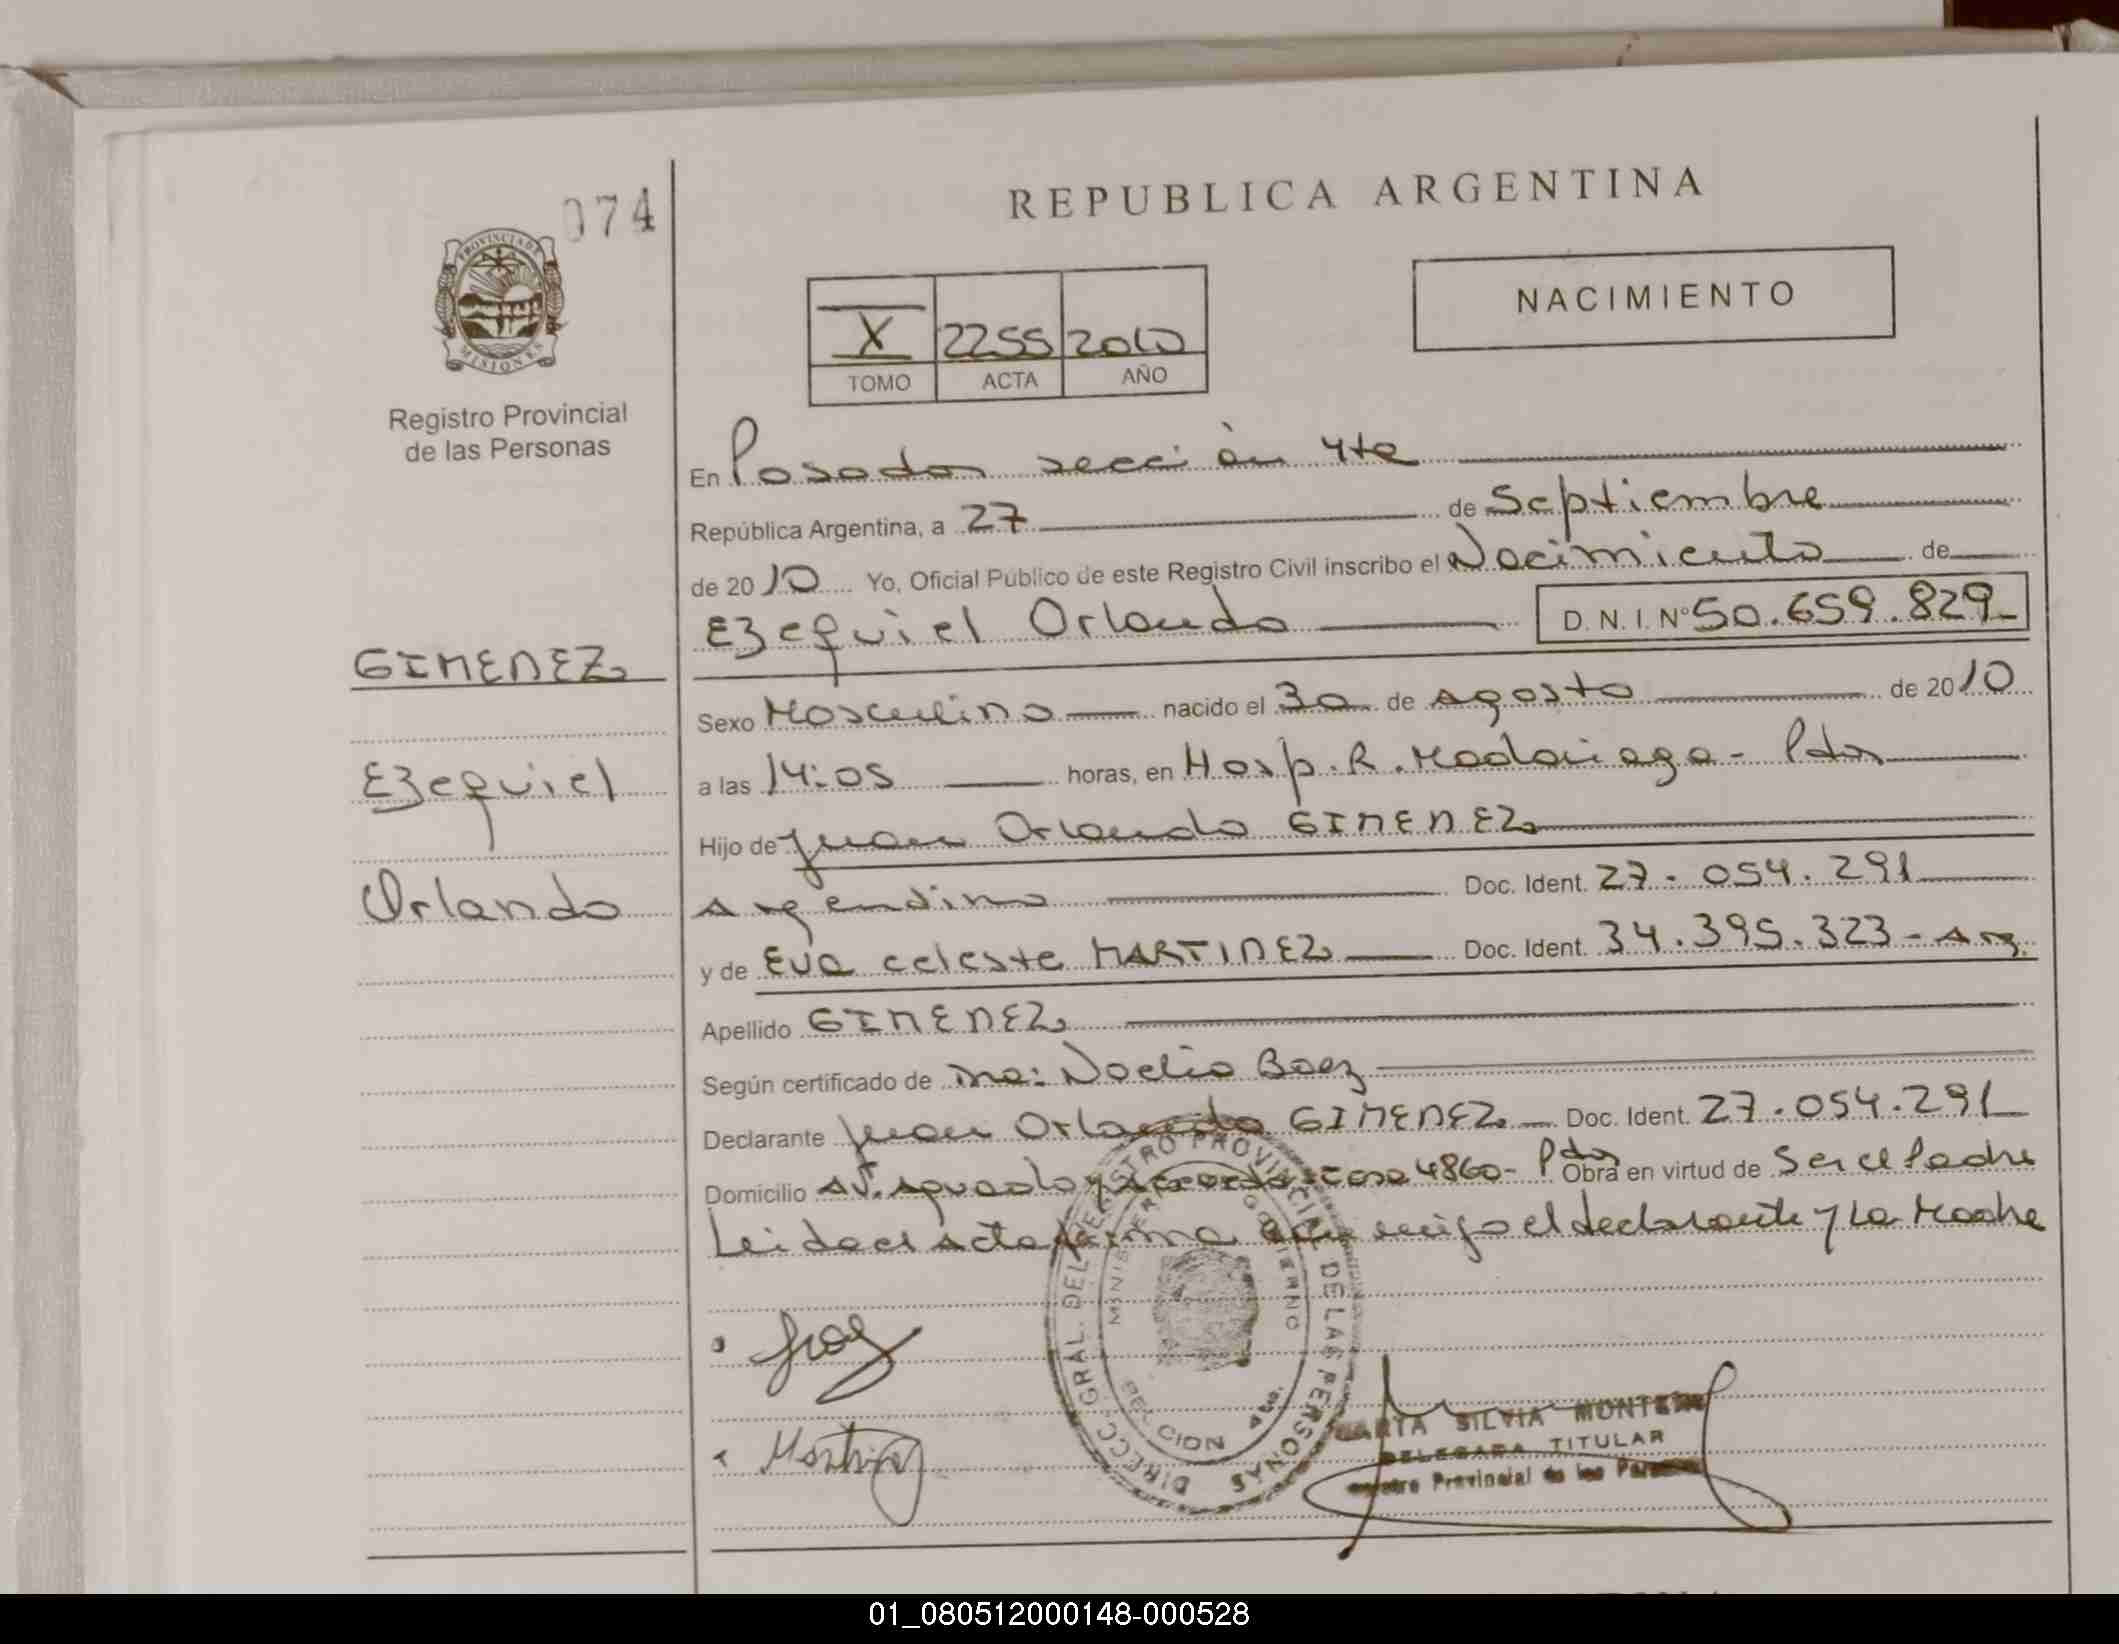 REPUBLICA ARGENTINA
074
PROVINCIA DE MISIONES
Registro Provincial
de las Personas
NACIMIENTO
X 2255 2010
TOMO ACTA AÑO
En Posadas sección 4ta
República Argentina, a 27 de Septiembre
de 2010 Yo, Oficial Público de este Registro Civil inscribo el Nacimiento de
Ezequiel Orlando D. N. I. N° 50.659.829
GIMENEZ
Ezequiel
Orlando
Sexo Masculino nacido el 30 de Agosto de 2010
a las 14:05 horas, en Hosp. R. Madariaga - Pdas
Hijo de Juan Orlando GIMENEZ
Argentino Doc. Ident. 27.054.291
y de Eva Celeste MARTINEZ Doc. Ident. 34.395.323 - Arg.
Apellido GIMENEZ
Según certificado de Dra: Noelia Baez
Declarante Juan Orlando GIMENEZ Doc. Ident. 27.054.291
Domicilio Av. Aguado y casa 4860 - Pdas Obra en virtud de Ser el Padre
Leida el Acta firma con migo el declarante y La Madre
DIRECC. GRAL. DEL REGISTRO PROVINCIAL DE LAS PERSONAS
MINISTERIO GOBIERNO
MARTA SILVIA MONTERO
DELEGADA TITULAR
Registro Provincial de las Personas
01_080512000148-000528